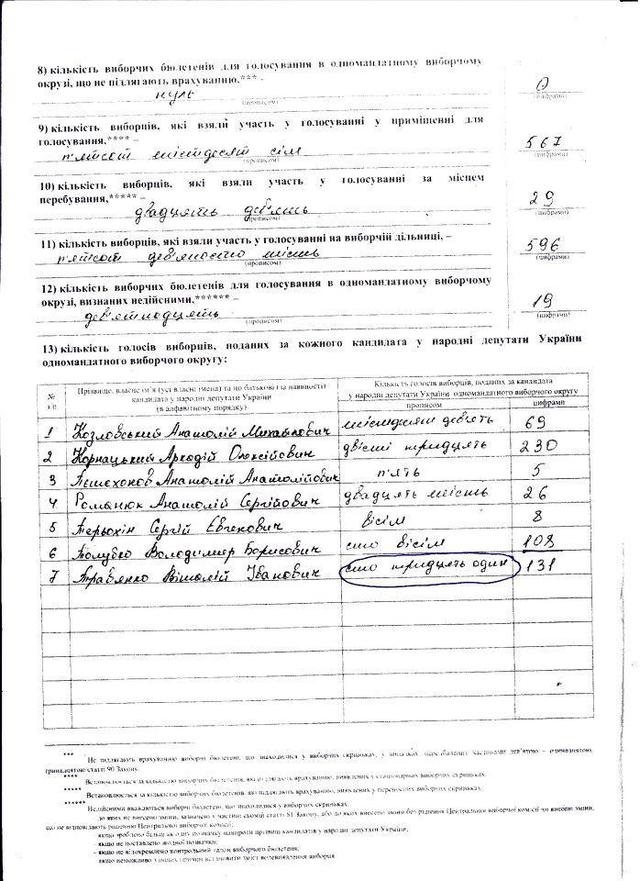 8) кількість виборчих бюлетенів для голосування в одномандатному виборчому
округу, що не підлягають врахуванню,*** –
нуль
0
(прописом)
(цифрами)
9) кількість виборців, які взяли участь у голосуванні у приміщенні для
голосування,**** –
п'ятсот шістдесят сім
567
(прописом)
(цифрами)
10) кількість виборців, які взяли участь у голосуванні за місцем
перебування,***** –
двадцять дев'ять
29
(прописом)
(цифрами)
11) кількість виборців, які взяли участь у голосуванні на виборчій дільниці, –
п'ятсот дев'яносто шість
596
(прописом)
(цифрами)
12) кількість виборчих бюлетенів для голосування в одномандатному виборчому
окрузі, визнаних недійсними,****** –
дев'ятнадцять
19
(прописом)
(цифрами)
13) кількість голосів виборців, поданих за кожного кандидата у народні депутати України
одномандатного виборчого округу:
№ з/п
Прізвище, власне ім'я (усі власні імена) та по батькові (за наявності)
кандидата у народні депутати України
(в алфавітному порядку)
Кількість голосів виборців, поданих за кандидата
у народні депутати України одномандатного виборчого округу
прописом цифрами
1 Козловський Анатолій Михайлович шістдесят дев'ять 69
2 Корнацький Аркадій Олексійович двісті тридцять 230
3 Пешехонов Анатолій Анатолійович п'ять 5
4 Романюк Анатолій Сергійович двадцять шість 26
5 Терьохін Сергій Євгенович вісім 8
6 Голубєв Володимир Борисович сто вісім 108
7 Травянко Віталій Іванович сто тридцять один 131
*** Не підлягають врахуванню виборчі бюлетені, що знаходилися у виборчих скриньках, у випадках, передбачених частинами дев'ятою – одинадцятою,
тринадцятою статті 90 Закону.
**** Встановлюється за кількістю виборчих бюлетенів, які підлягають врахуванню, виявлених у стаціонарних виборчих скриньках.
***** Встановлюється за кількістю виборчих бюлетенів, які підлягають врахуванню, виявлених у переносних виборчих скриньках.
****** Недійсними вважаються виборчі бюлетені, що знаходилися у виборчих скриньках:
до яких не внесено зміни, зазначені у частині сьомій статті 81 Закону, або до яких внесено зміни без рішення Центральної виборчої комісії чи внесені зміни,
що не відповідають рішенню Центральної виборчої комісії;
- якщо зроблено більш як одну позначку навпроти прізвищ кандидатів у народні депутати України;
- якщо не поставлено жодної позначки;
- якщо не відокремлено контрольний талон виборчого бюлетеня;
якщо неможливо з інших причин встановити зміст волевиявлення виборця